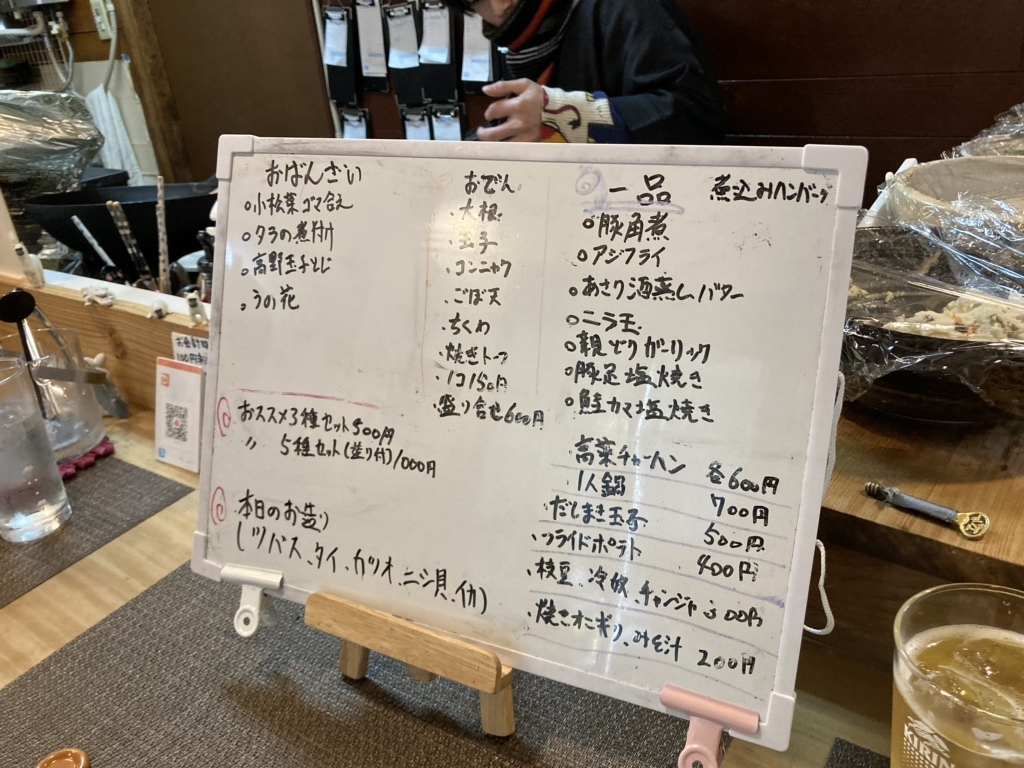 おばんざい
小松菜ゴマ合え
タラの煮付け
高野玉子とじ
うの花
おススメ3種セット500円
〃 5種セット(造り付)1000円
本日のお造り
(ツバス、タイ、カツオ、ニシ貝、イカ)
おでん
・大根
・玉子
・コンニャク
・ごぼ天
・ちくわ
・焼きトーフ
・1コ150円
・盛り合せ600円
一品
煮込みハンバーグ
豚角煮
アジフライ
あさり酒蒸しバター
ニラ玉
親どりガーリック
豚足塩焼き
鮭カマ塩焼き
各600円
高菜チャーハン
・1人鍋 700円
・だしまき玉子 500円
・フライドポテト 400円
・枝豆、冷奴、チャンジャ 300円
・焼きオニギリ、みそ汁 200円
お会計時
KIRIN